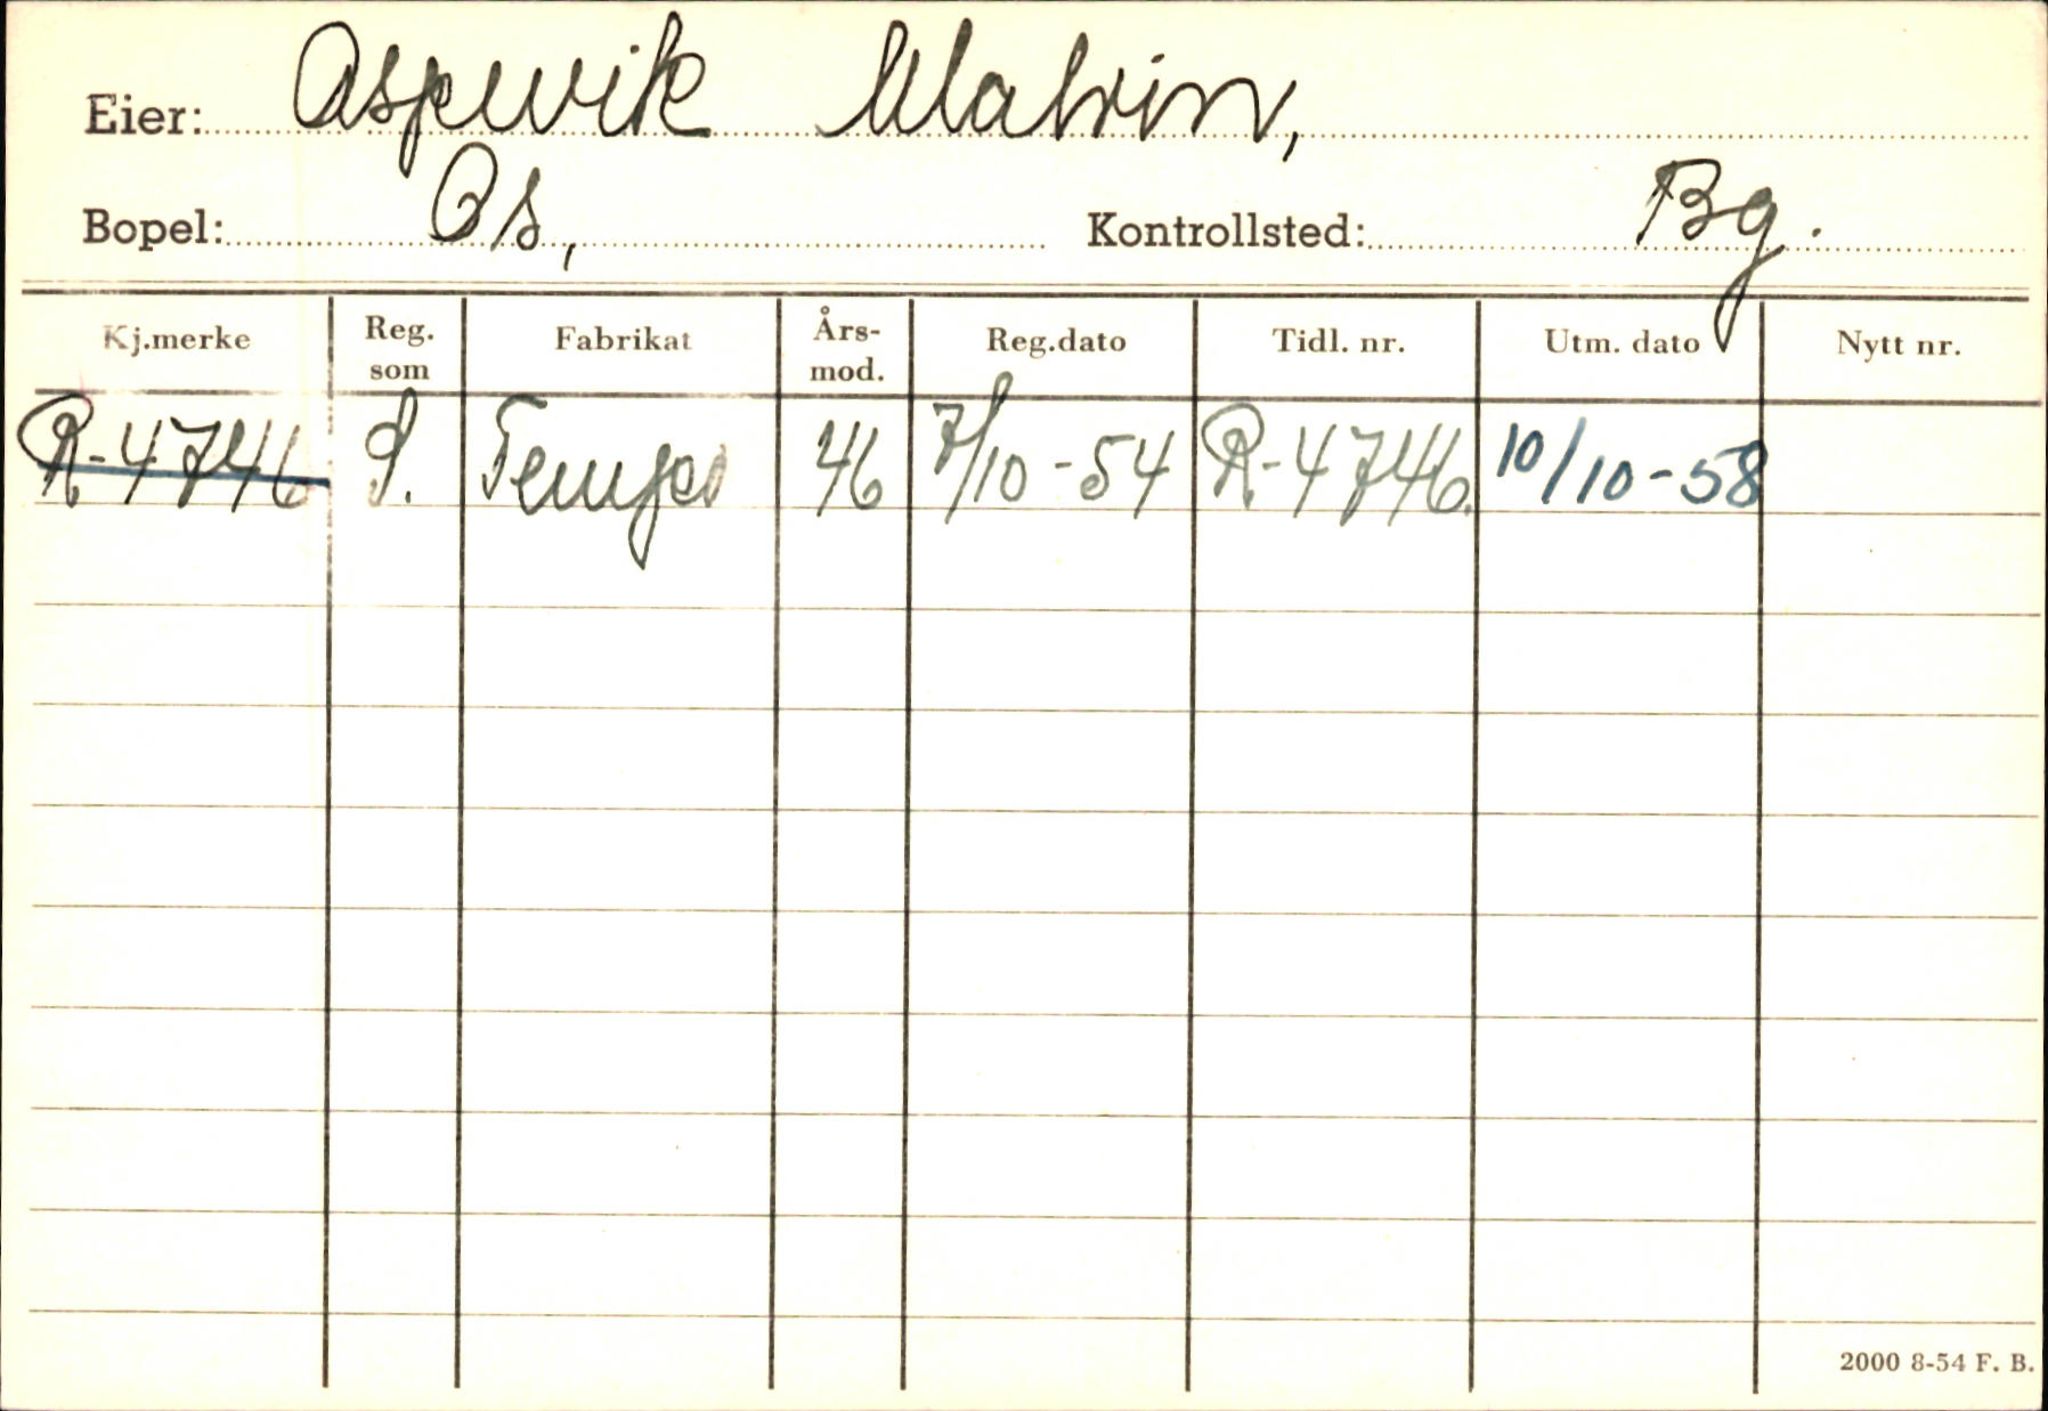 Eier: Aspevik Malvin,
Bopel: Os, Kontrollsted: Bg.
Kj.merke Reg. som Fabrikat Års-mod. Reg.dato Tidl. nr. Utm. dato Nytt nr.
R-4746 P. Tempo 46 7/10-54 R-4746. 10/10-58
2000 8-54 F. B.